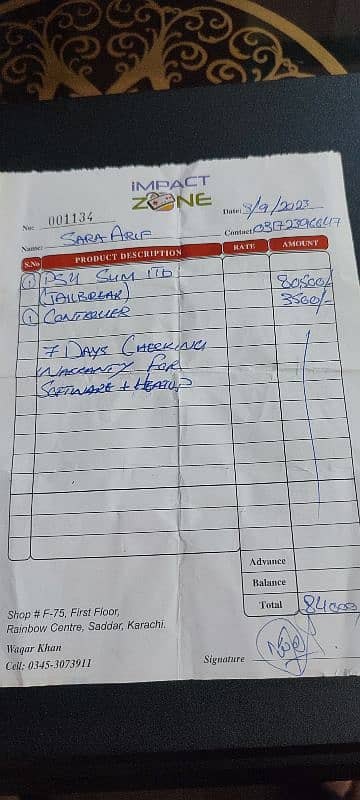 IMPACT
ZONE
No: 001134
Date: 8/9/2023
Name: SARA ARIF
Contact 03172396647
S.No PRODUCT DESCRIPTION RATE AMOUNT
1 PS4 SLIM 1TB 80500/-
(JAILBREAK)
1 CONTROLLER 3500/-
7 DAYS CHECKING
WARRANTY FOR
SOFTWARE + HEATUP
Advance
Balance
Total 84000/
Shop # F-75, First Floor,
Rainbow Centre, Saddar, Karachi.
Waqar Khan
Cell: 0345-3073911
Signature